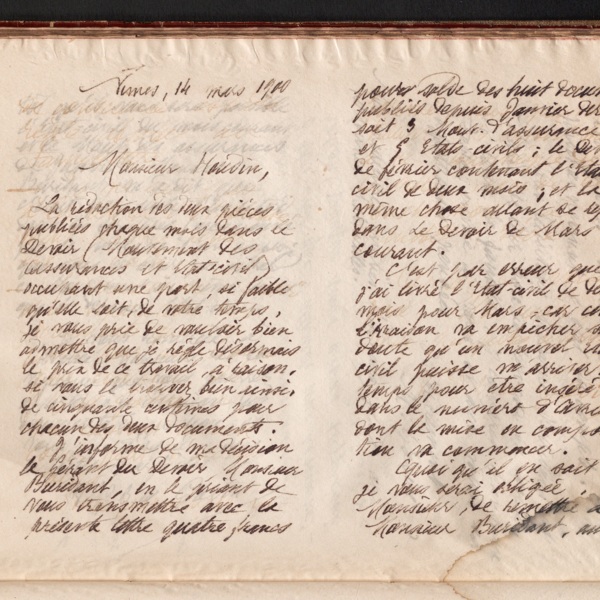 Nimes, 14 mars 1900
Monsieur Houdin,
La rédaction des deux pièces
publiées chaque mois dans le
Devoir (Mouvement des
assurances et Etat civil)
occupant une part, si faible
qu'elle soit, de votre temps,
je vous prie de vouloir bien
admettre que je règle désormais
le prix de ce travail, à raison,
si vous le trouvez bien ainsi,
de cinquante centimes pour
chacun des deux documents.
J'informe de ma décision
le Gérant du Devoir, Monsieur
Buridant, en le priant de
vous transmettre avec la
présente lettre quatre francs
pour solde des huit docum
publiés depuis Janvier der
soit 3 Mouv. d'assurance
et 5 Etats-civils ; le Dev
de février contenant l'Eta
civil de deux mois ; et la
même chose allant de
dans le Devoir de Mars
courant.
C'est par erreur que
j'ai livré l'Etat-civil de de
mois pour Mars, car
va empêcher s
doute qu'un nouvel
civil puisse m'arriver
temps pour être inséré
dans le numéro d'Avril
dont la mise en compos
tion va commencer.
Quoi qu'il en soit
je vous serai obligée,
Monsieur, de remettre à
Monsieur Buridant, au